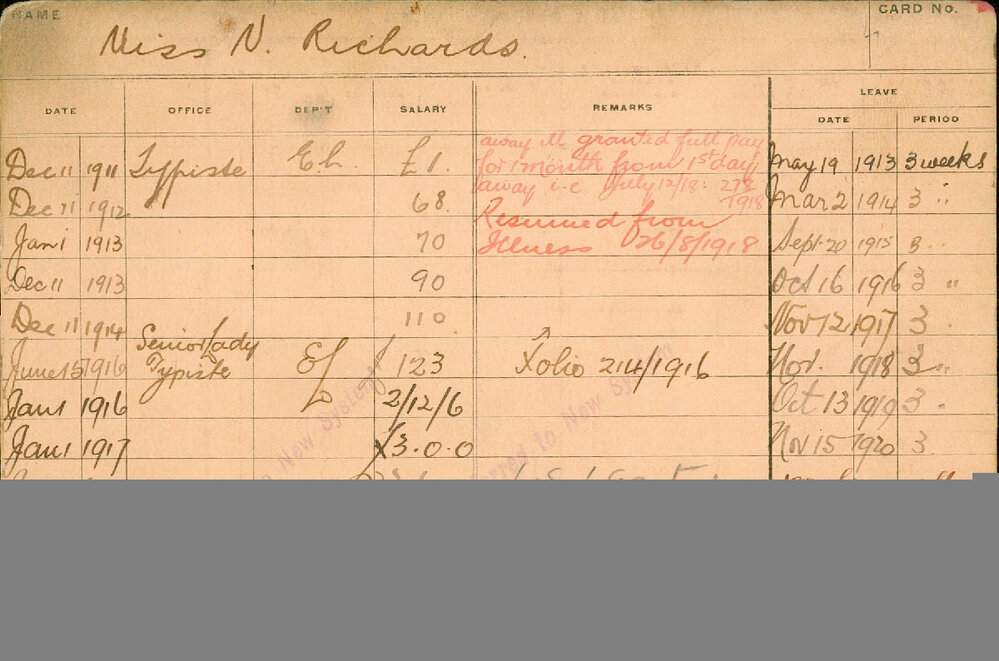 NAME
CARD NO.
Miss N. Richards.
DATE OFFICE DEP'T SALARY REMARKS LEAVE
DATE PERIOD
Dec 11 1911 Typiste Eh. £1.
Dec 11 1912 68.
Jan 1 1913 70
Dec 11 1913 90
Dec 11 1914 110.
June 15 1916 Senior Lady Typiste 123
Jan 1 1916 2/12/6
Jan 1 1917 3.0.0
away ill granted full pay
for 1 month from 1st day
away i.e July 12/18:
1918
Resumed from
Illness 26/8/1918
Folio 214/1916
May 19 1913 3 weeks
Mar 2 1914 3 "
Sept 20 1915 3 "
Oct 16 1916 3 "
Nov 12 1917 3
Nov. 1918 3 "
Oct 13 1919 3 "
Nov 15 1920 3
New System
to New